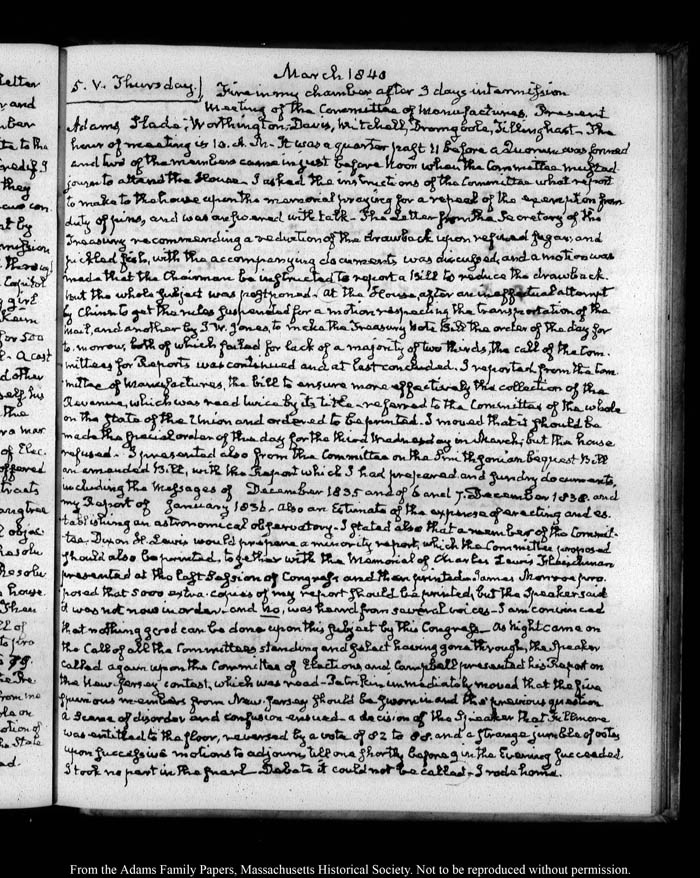 March 1840
5. V. Thursday. Fire in my chamber after 3 days intermission
Meeting of the Committee of Manufactures. Present
Adams, Slade, Worthington, Davis, Mitchell, Tillinghast. The
hour of meeting is 10. A.M. It was a quarter past 11 before a Quorum was formed
and two of the members came in just before Noon when the Committee must ad-
journ to attend the House. I asked the instructions of the Committee what report
to make to the house upon the memorial praying for a repeal of the exemption from
duty of pins, and was answered with talk. The Letter from the Secretary of the
Treasury recommending a reduction of the drawback upon refined sugar, and
pickled fish, with the accompanying documents was discussed, and a motion was
made that the Chairman be instructed to report a Bill to reduce the drawback.
but the whole subject was postponed. At the House, after an ineffectual attempt
by to get the rules suspended for a motion respecting the transportation of the
mail, and another by J. W. Jones, to make the Treasury Note Bill the order of the day for
to-morrow, both of which failed for lack of a majority of two thirds, the call of the Com-
mittees for Reports was continued and at last concluded. I reported from the Com-
mittee of Manufactures, the bill to ensure more effectively the collection of the
Revenue, which was read twice by its title, referred to the Committee of the whole
on the State of the Union and ordered to be printed. I moved that it should be
made the special order of the day for the third Wednesday in March, but the house
refused. I presented also from the Committee on the Smithsonian bequest Bill
an amended Bill, with the Report which I had prepared and sundry documents,
including the Messages of December 1835 and of 6 and 7. December 1838. and
my Report of January 1836. also an Estimate of the expense of erecting and es-
tablishing an astronomical observatory. I stated also that a member of the Commit-
tee, Dixon H. Lewis would prepare a minority report, which the Committee proposed
should also be printed, together with the Memorial of Charles Lewis Fleischman
presented at the last Session of Congress and then printed. James Monroe pro-
posed that 5000 extra copies of my report should be printed, but the Speaker said
it was not now in order. and no, was heard from several voices. I am convinced
that nothing good can be done upon this subject by this Congress. As Night came on
the Call of all the Committees standing and select having gone through, the Speaker
called again upon the Committee of Elections, and Campbell presented his Report on
the New-Jersey contest, which was read. Petrikin immediately moved that the five
spurious members from New-Jersey should be sworn in and the previous question
A scene of disorder and confusion ensued. a decision of the Speaker that Fillmore
was entitled to the floor, reversed by a vote of 82 to 88. and a strange jumble of votes
upon successive motions to adjourn, till one shortly before 9 in the Evening succeeded.
I took no part in the Debate it could not be called. I rode home.
From the Adams Family Papers, Massachusetts Historical Society. Not to be reproduced without permission.